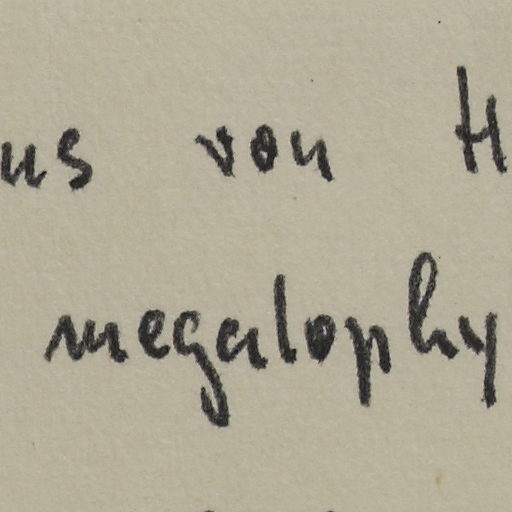 us von H
megalophy